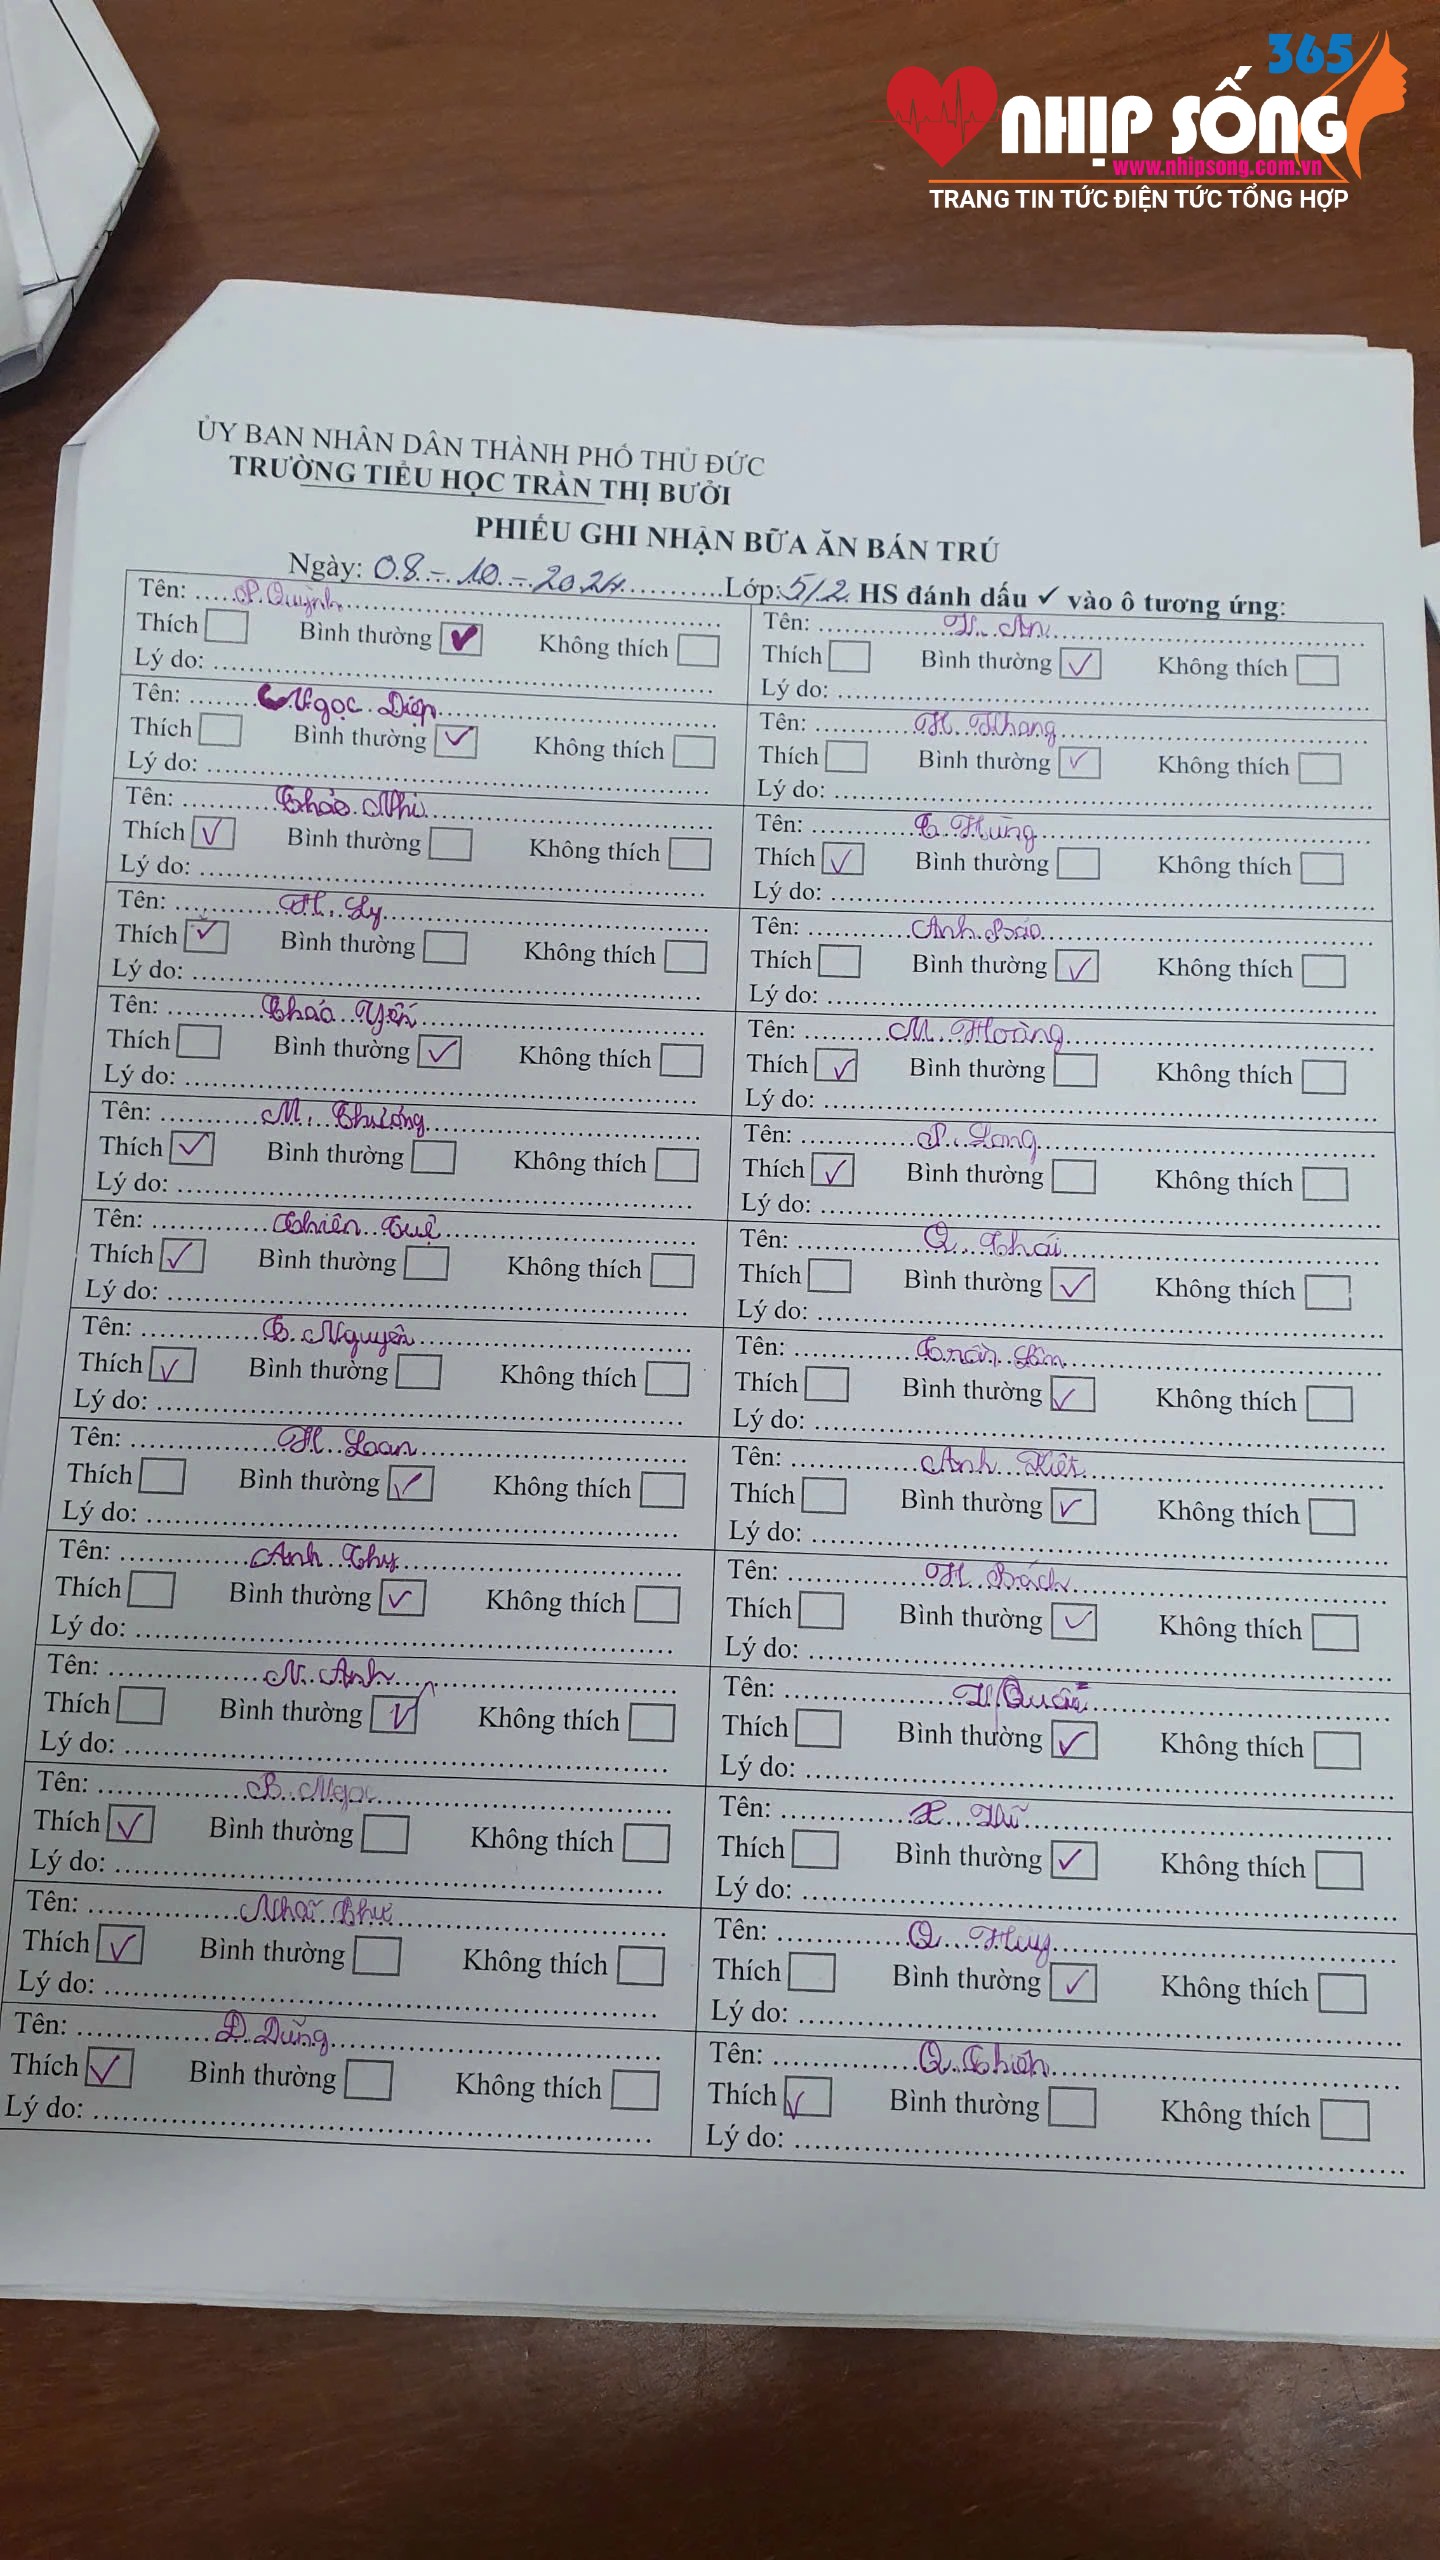 365
NHỊP SỐNG
www.nhipsong.com.vn
TRANG TIN TỨC ĐIỆN TỨC TỔNG HỢP
ỦY BAN NHÂN DÂN THÀNH PHỐ THỦ ĐỨC
TRƯỜNG TIỂU HỌC TRẦN THỊ BƯỞI
PHIẾU GHI NHẬN BỮA ĂN BÁN TRÚ
Ngày: 08-10-2024 Lớp: 5/2 HS đánh dấu ✓ vào ô tương ứng:
Tên: P. Quỳnh
Thích Bình thường ✓ Không thích
Lý do:
Tên: An
Thích Bình thường ✓ Không thích
Lý do:
Tên: Ngọc Diệp
Thích Bình thường ✓ Không thích
Lý do:
Tên: H. Khang
Thích Bình thường ✓ Không thích
Lý do:
Tên: Thảo Nhi
Thích ✓ Bình thường Không thích
Lý do:
Tên: T. Hùng
Thích ✓ Bình thường Không thích
Lý do:
Tên: H. Ly
Thích ✓ Bình thường Không thích
Lý do:
Tên: Anh Bảo
Thích Bình thường ✓ Không thích
Lý do:
Tên: Thảo Yến
Thích Bình thường ✓ Không thích
Lý do:
Tên: M. Hoàng
Thích ✓ Bình thường Không thích
Lý do:
Tên: M. Thương
Thích ✓ Bình thường Không thích
Lý do:
Tên: P. Long
Thích ✓ Bình thường Không thích
Lý do:
Tên: Thiên Tuệ
Thích ✓ Bình thường Không thích
Lý do:
Tên: Q. Thái
Thích Bình thường ✓ Không thích
Lý do:
Tên: T. Nguyên
Thích ✓ Bình thường Không thích
Lý do:
Tên: Trần Lâm
Thích Bình thường ✓ Không thích
Lý do:
Tên: H. Loan
Thích Bình thường ✓ Không thích
Lý do:
Tên: Anh Kiệt
Thích Bình thường ✓ Không thích
Lý do:
Tên: Anh Thy
Thích Bình thường ✓ Không thích
Lý do:
Tên: H. Bách
Thích Bình thường ✓ Không thích
Lý do:
Tên: N. Anh
Thích Bình thường ✓ Không thích
Lý do:
Tên: Quân
Thích Bình thường ✓ Không thích
Lý do:
Tên: B. Ngọc
Thích ✓ Bình thường Không thích
Lý do:
Tên:
Thích Bình thường ✓ Không thích
Lý do:
Tên: Nhã Thư
Thích ✓ Bình thường Không thích
Lý do:
Tên: Q. Huy
Thích Bình thường ✓ Không thích
Lý do:
Tên: Đ. Dũng
Thích ✓ Bình thường Không thích
Lý do:
Tên: Q. Thiên
Thích ✓ Bình thường Không thích
Lý do: